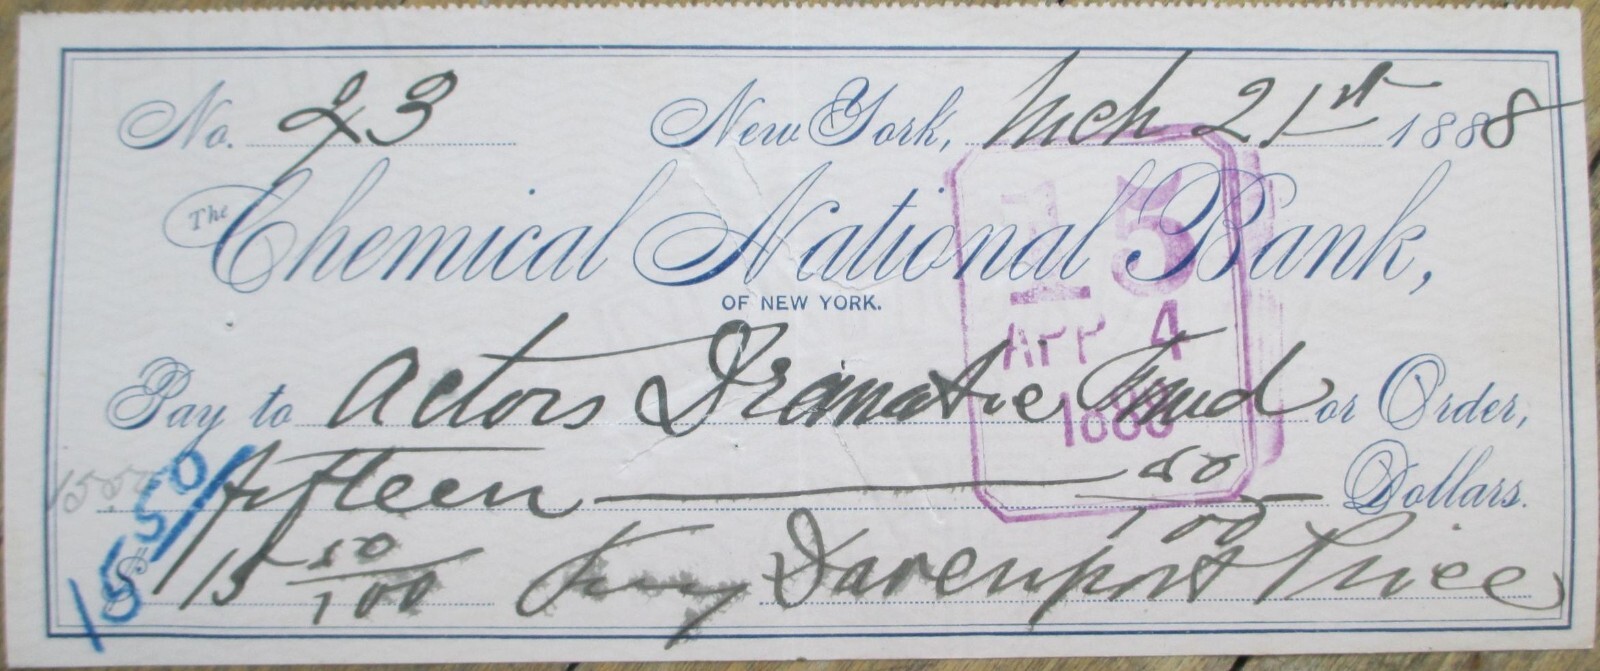 No. 23 New York, Mch 21st 1888
The Chemical National Bank,
OF NEW YORK.
15
APR 4
Pay to Actors Dramatic Fund or Order,
15.50
fifteen 50/100 Dollars.
15.50
$ 15 50/100 Fanny Davenport Price